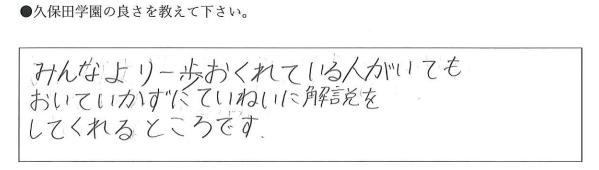 ●久保田学園の良さを教えて下さい。
みんなより一歩おくれている人がいても
おいていかずにていねいに解説を
してくれるところです.